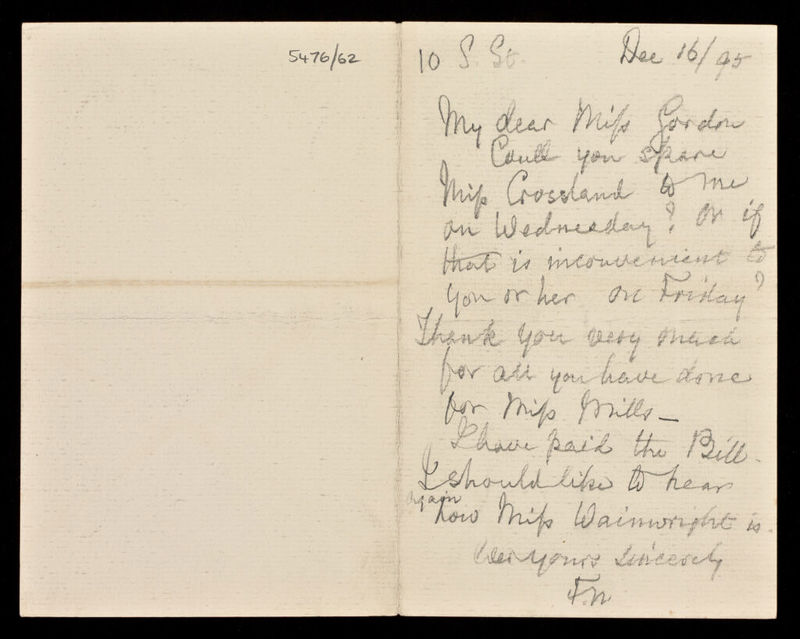 5476/62
10 S. St. Dec 16/95
My dear Miss Gordon
Could you spare
Miss Crossland to me
on Wednesday? or if
that is inconvenient to
you or her on Friday?
Thank you very much
for all you have done
for Miss Mills_
I have paid the Bill.
I should like to hear
again
how Miss Wainwright is.
ever yours sincerely
F.N